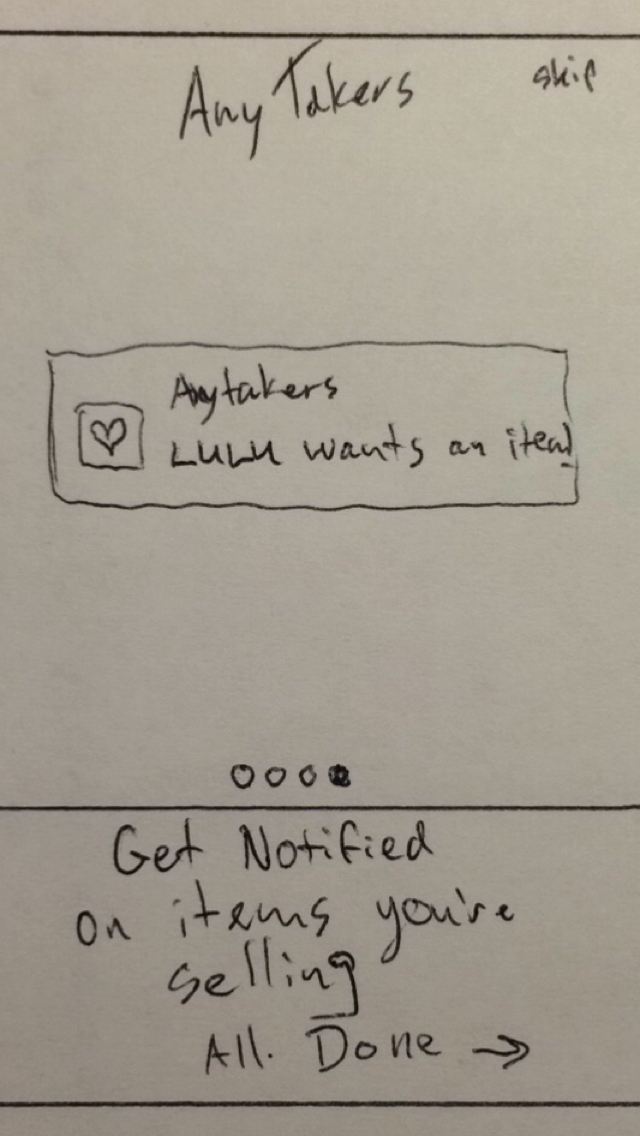 Any Takers
skip
Anytakers
LULU wants an item!
Get Notified
on items you're
selling
All. Done →